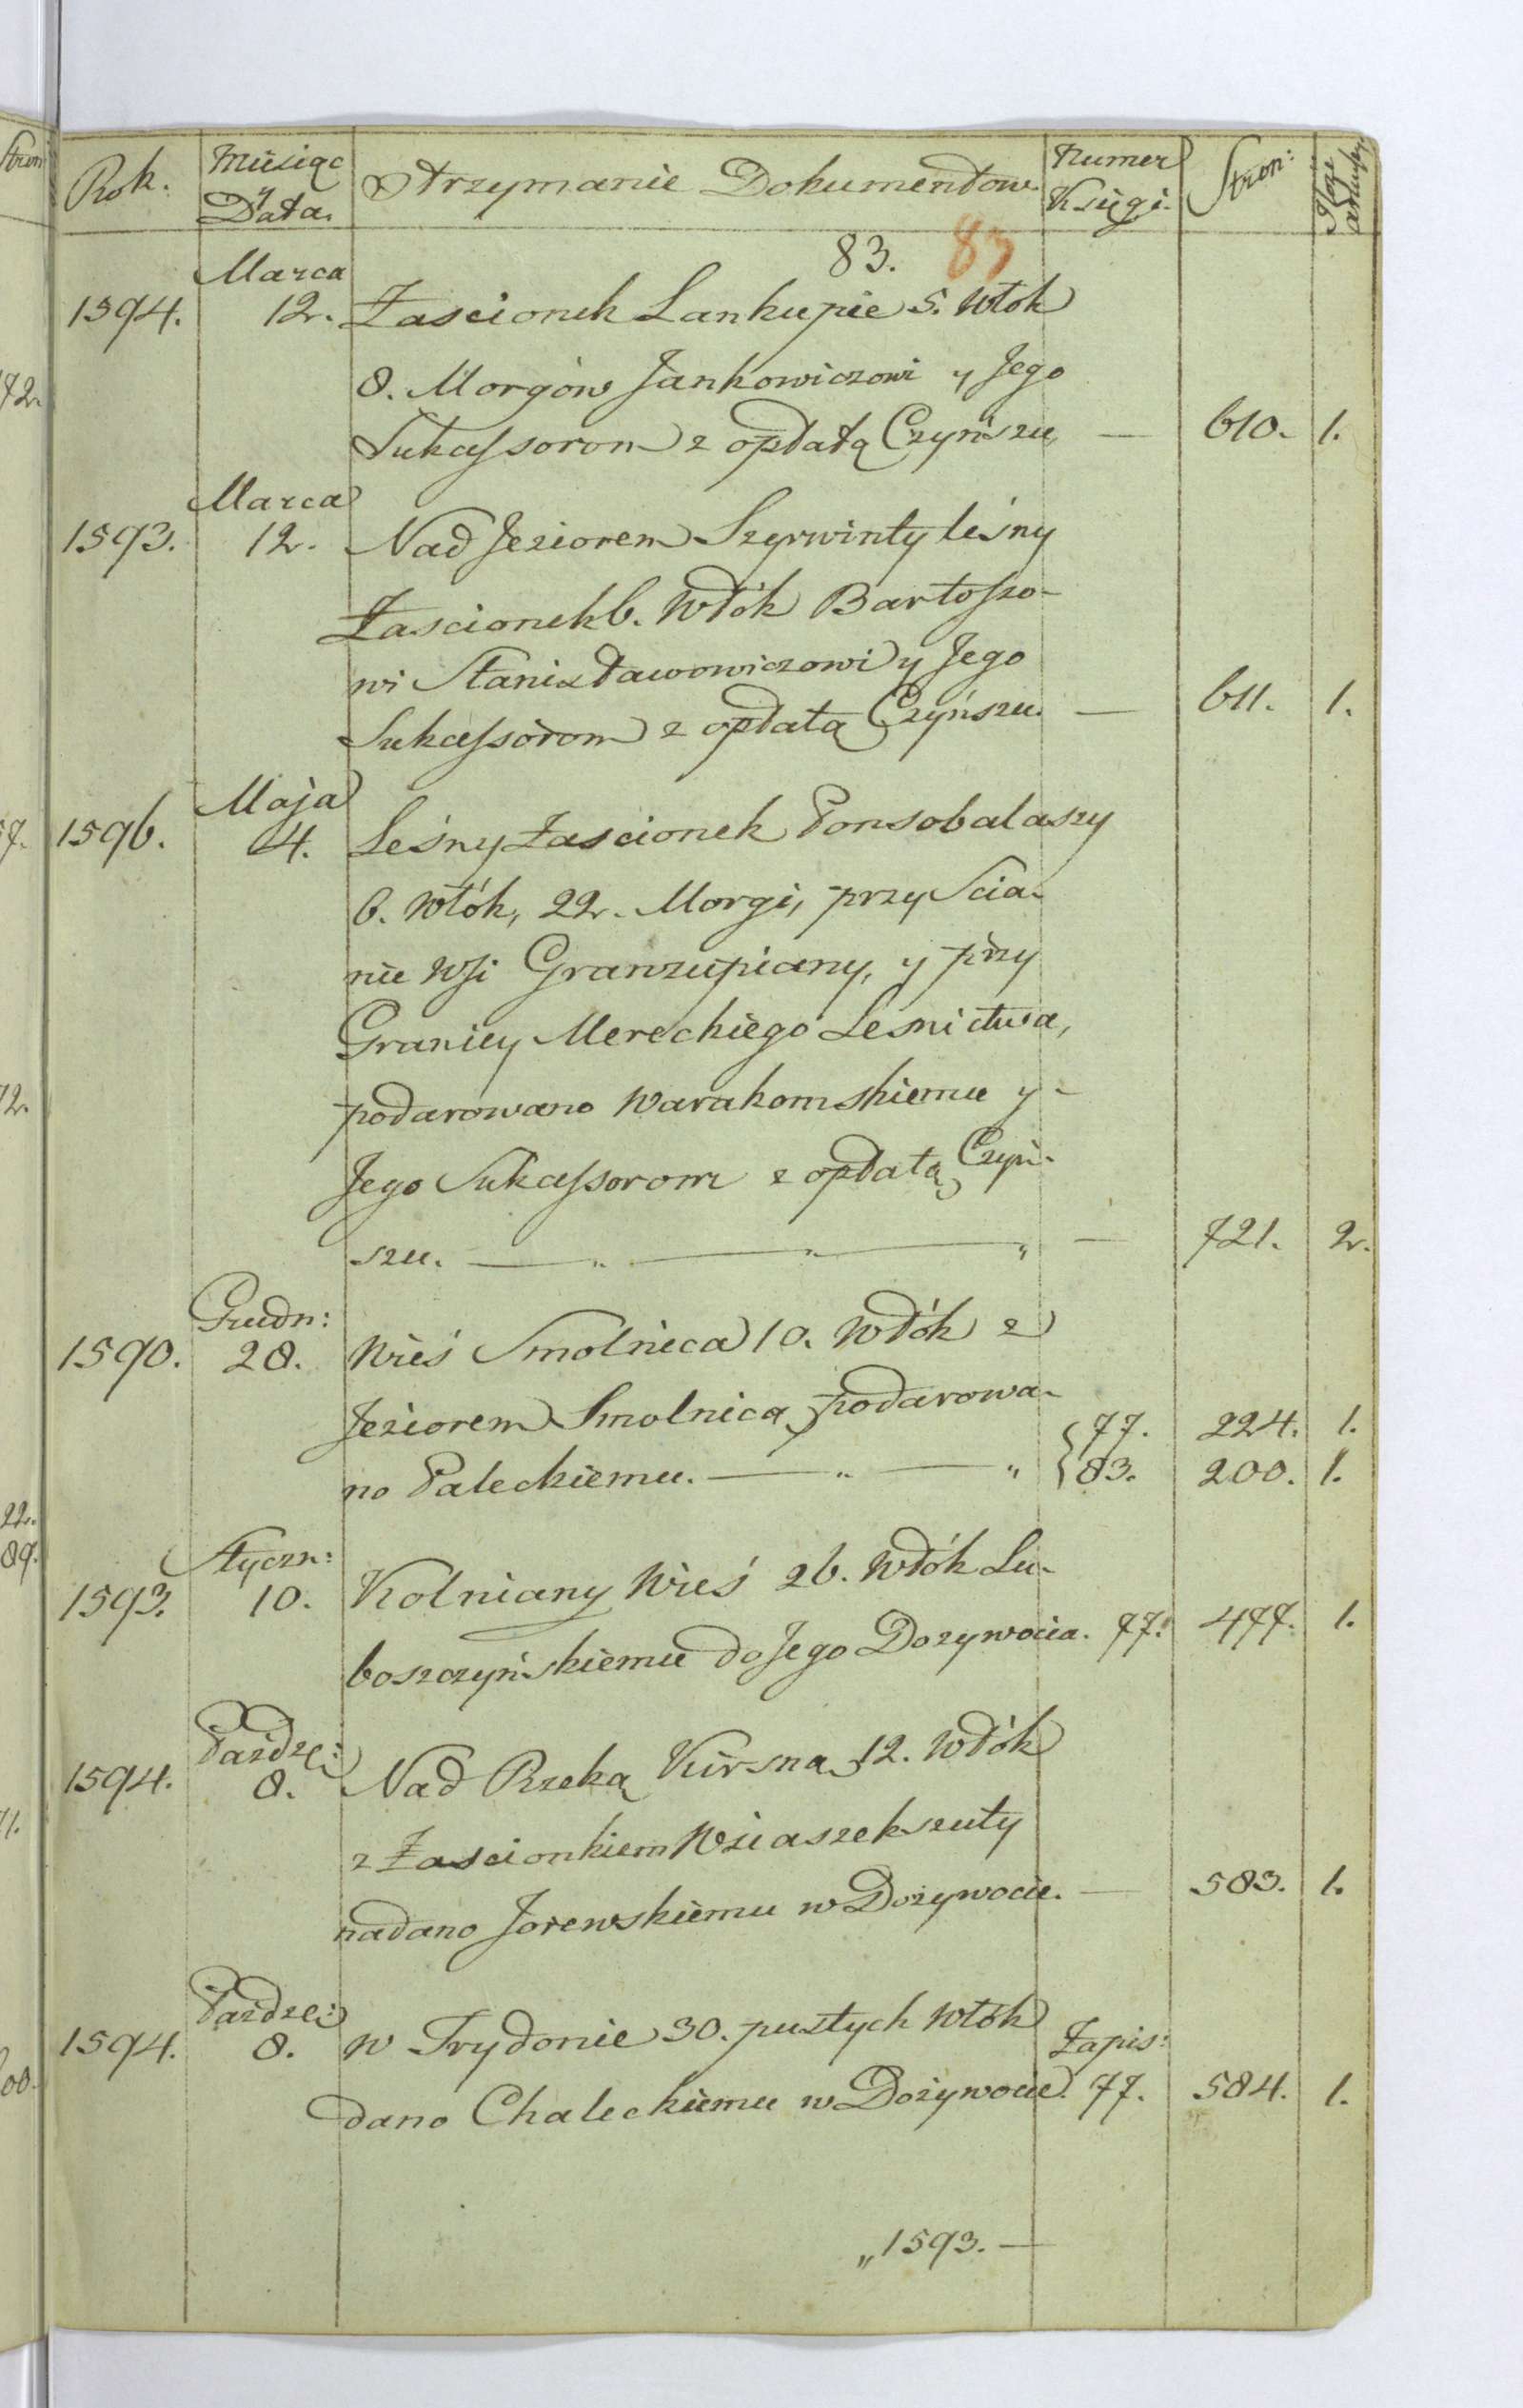 Rok. Miesiąc y Data. Otrzymanie Dokumentow. Numer Księgi. Stron:
83. 83
Marca
1594. 12. Zascionek Lankupie 5. Włok
8. Morgów Jankowiczowi y Jego
Sukcessorom z opłatą Czynszu — 610. 1.
Marca
1593. 12. Nad Jeziorem Szyrwinty leśny
Zascionek 6. Włók Bartoszo-
wi Stanisławowiczowi y Jego
Sukcessorom z opłatą Czyńszu. — 611. 1.
Maja
1596. 4. Leśny Zascionek Ponsobalaszy
6. Włók, 22. Morgi, przy Scia-
nie Wsi Granzupiany, y przy
Granicy Mereckiego Lesnictwa,
podarowano Warakomskiemu y-
Jego Sukcessorom z opłatą Czyń-
szu. — „ — „ — „ — 721. 2.
Grudn:
1590. 28. Wieś Smolnica 10. Włók z
Jeziorem Smolnica podarowa- 77. 224. 1.
no Paleckiemu. — „ — „ 83. 200. 1.
Styczn:
1593. 10. Kolniany Wieś 26. Włók Lu-
boszczyńskiemu do Jego Dozywocia. 77. 477. 1.
Pazdze:
1594. 8. Nad Rzeką Kirsna 12. Włók
z Zascionkiem Wziaszekszuty
nadano Jorewskiemu w Dożywocie. — 583. 1.
Pazdze:
1594. 8. w Trydonie 30. pustych Włók Zapis:
dano Chaleckiemu w Dożywocie. 77. 584. 1.
„1593. —